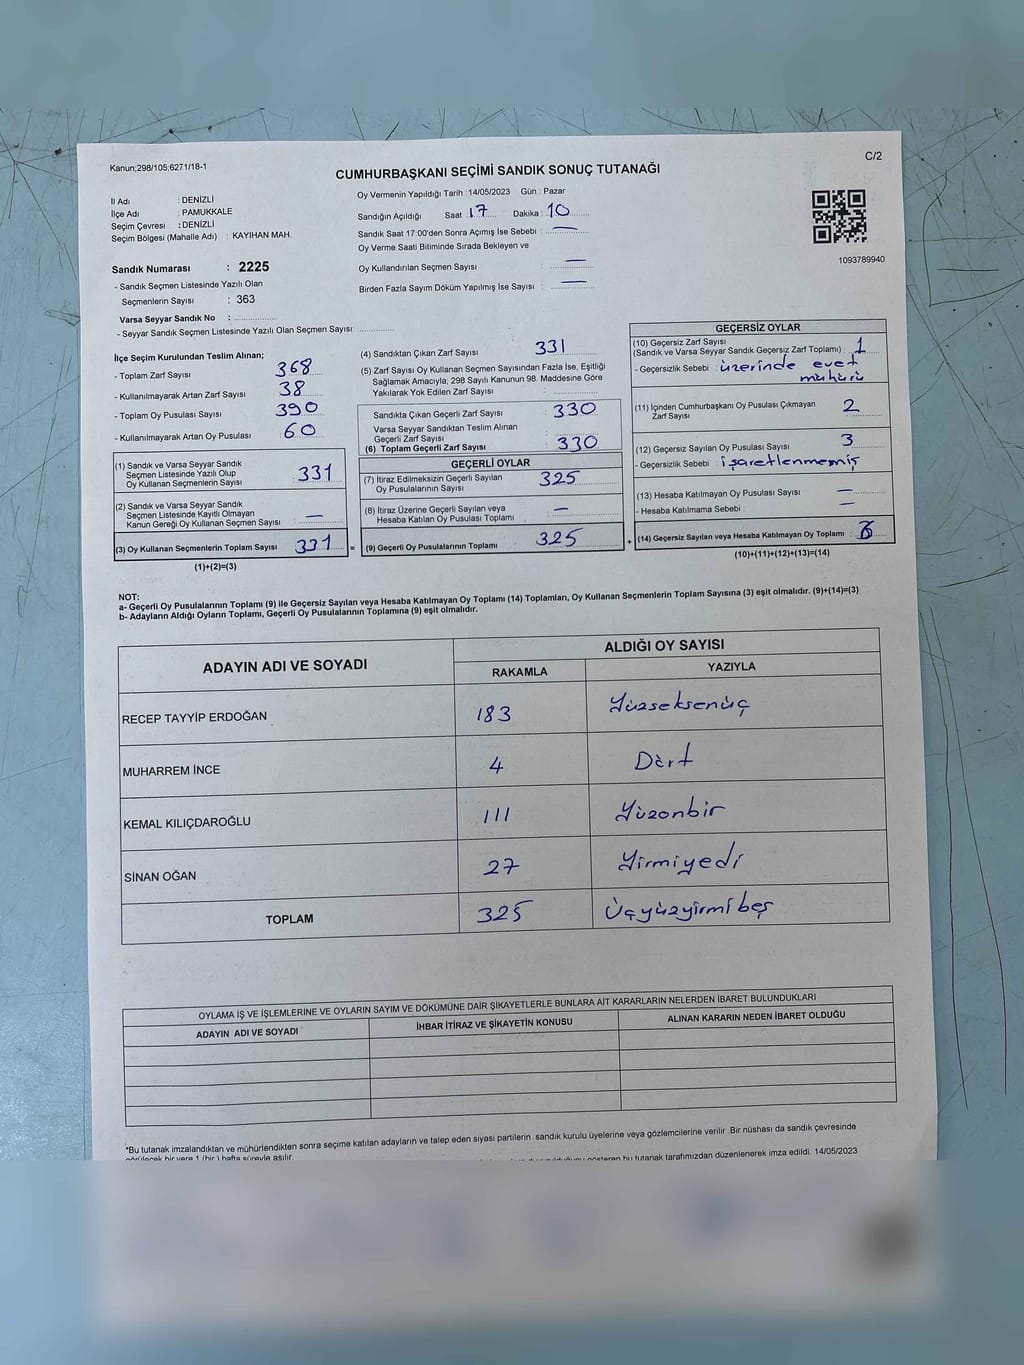 Kanun;298/105;6271/18-1
C/2
CUMHURBAŞKANI SEÇİMİ SANDIK SONUÇ TUTANAĞI
İl Adı : DENİZLİ
İlçe Adı : PAMUKKALE
Seçim Çevresi : DENİZLİ
Seçim Bölgesi (Mahalle Adı) : KAYIHAN MAH.
Sandık Numarası : 2225
- Sandık Seçmen Listesinde Yazılı Olan
Seçmenlerin Sayısı : 363
Varsa Seyyar Sandık No :
- Seyyar Sandık Seçmen Listesinde Yazılı Olan Seçmen Sayısı:
Oy Vermenin Yapıldığı Tarih : 14/05/2023 Gün : Pazar
Sandığın Açıldığı Saat : 17 Dakika : 10
Sandık Saat 17:00'den Sonra Açımış İse Sebebi : —
Oy Verme Saati Bitiminde Sırada Bekleyen ve
Oy Kullandırılan Seçmen Sayısı : —
Birden Fazla Sayım Döküm Yapılmış İse Sayısı : —
1093789940
İlçe Seçim Kurulundan Teslim Alınan;
- Toplam Zarf Sayısı : 368
- Kullanılmayarak Artan Zarf Sayısı : 38
- Toplam Oy Pusulası Sayısı : 390
- Kullanılmayarak Artan Oy Pusulası : 60
(1) Sandık ve Varsa Seyyar Sandık
Seçmen Listesinde Yazılı Olup
Oy Kullanan Seçmenlerin Sayısı : 331
(2) Sandık ve Varsa Seyyar Sandık
Seçmen Listesinde Kayıtlı Olmayan
Kanun Gereği Oy Kullanan Seçmen Sayısı : —
(3) Oy Kullanan Seçmenlerin Toplam Sayısı : 331
(1)+(2)=(3)
(4) Sandıktan Çıkan Zarf Sayısı : 331
(5) Zarf Sayısı Oy Kullanan Seçmen Sayısından Fazla İse, Eşitliği
Sağlamak Amacıyla, 298 Sayılı Kanunun 98. Maddesine Göre
Yakılarak Yok Edilen Zarf Sayısı :
Sandıkta Çıkan Geçerli Zarf Sayısı : 330
Varsa Seyyar Sandıktan Teslim Alınan
Geçerli Zarf Sayısı :
(6) Toplam Geçerli Zarf Sayısı : 330
GEÇERLİ OYLAR
(7) İtiraz Edilmeksizin Geçerli Sayılan
Oy Pusulalarının Sayısı : 325
(8) İtiraz Üzerine Geçerli Sayılan veya
Hesaba Katılan Oy Pusulası Toplamı : —
= (9) Geçerli Oy Pusulalarının Toplamı : 325
GEÇERSİZ OYLAR
(10) Geçersiz Zarf Sayısı
(Sandık ve Varsa Seyyar Sandık Geçersiz Zarf Toplamı) : 1
- Geçersizlik Sebebi : üzerinde evet
mührü
(11) İçinden Cumhurbaşkanı Oy Pusulası Çıkmayan
Zarf Sayısı : 2
(12) Geçersiz Sayılan Oy Pusulası Sayısı : 3
- Geçersizlik Sebebi : işaretlenmemiş
(13) Hesaba Katılmayan Oy Pusulası Sayısı : —
- Hesaba Katılmama Sebebi : —
+ (14) Geçersiz Sayılan veya Hesaba Katılmayan Oy Toplamı : 6
(10)+(11)+(12)+(13)=(14)
NOT:
a- Geçerli Oy Pusulalarının Toplamı (9) ile Geçersiz Sayılan veya Hesaba Katılmayan Oy Toplamı (14) Toplamları, Oy Kullanan Seçmenlerin Toplam Sayısına (3) eşit olmalıdır. (9)+(14)=(3)
b- Adayların Aldığı Oyların Toplamı, Geçerli Oy Pusulalarının Toplamına (9) eşit olmalıdır.
ADAYIN ADI VE SOYADI
ALDIĞI OY SAYISI
RAKAMLA YAZIYLA
RECEP TAYYİP ERDOĞAN 183 Yüzseksenüç
MUHARREM İNCE 4 Dört
KEMAL KILIÇDAROĞLU 111 Yüzonbir
SİNAN OĞAN 27 Yirmiyedi
TOPLAM 325 Üçyüzyirmibeş
OYLAMA İŞ VE İŞLEMLERİNE VE OYLARIN SAYIM VE DÖKÜMÜNE DAİR ŞİKAYETLERLE BUNLARA AİT KARARLARIN NELERDEN İBARET BULUNDUKLARI
ADAYIN ADI VE SOYADI İHBAR İTİRAZ VE ŞİKAYETİN KONUSU ALINAN KARARIN NEDEN İBARET OLDUĞU
*Bu tutanak imzalandıktan ve mühürlendikten sonra seçime katılan adayların ve talep eden siyasi partilerin sandık kurulu üyelerine veya gözlemcilerine verilir. Bir nüshası da sandık çevresinde
görülecek bir yere 1 (bir) hafta süreyle asılır. gösteren bu tutanak tarafımızdan düzenlenerek imza edildi. 14/05/2023